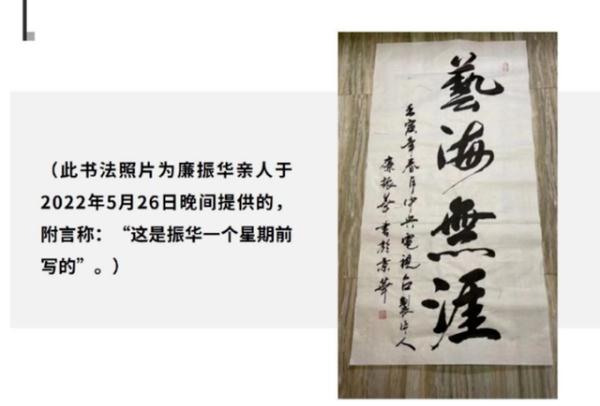 （此书法照片为廉振华亲人于
2022年5月26日晚间提供的，
附言称：“这是振华一个星期前
写的”。）
藝海無涯
壬寅年春月中央電視台製片人
廉振华書於京華